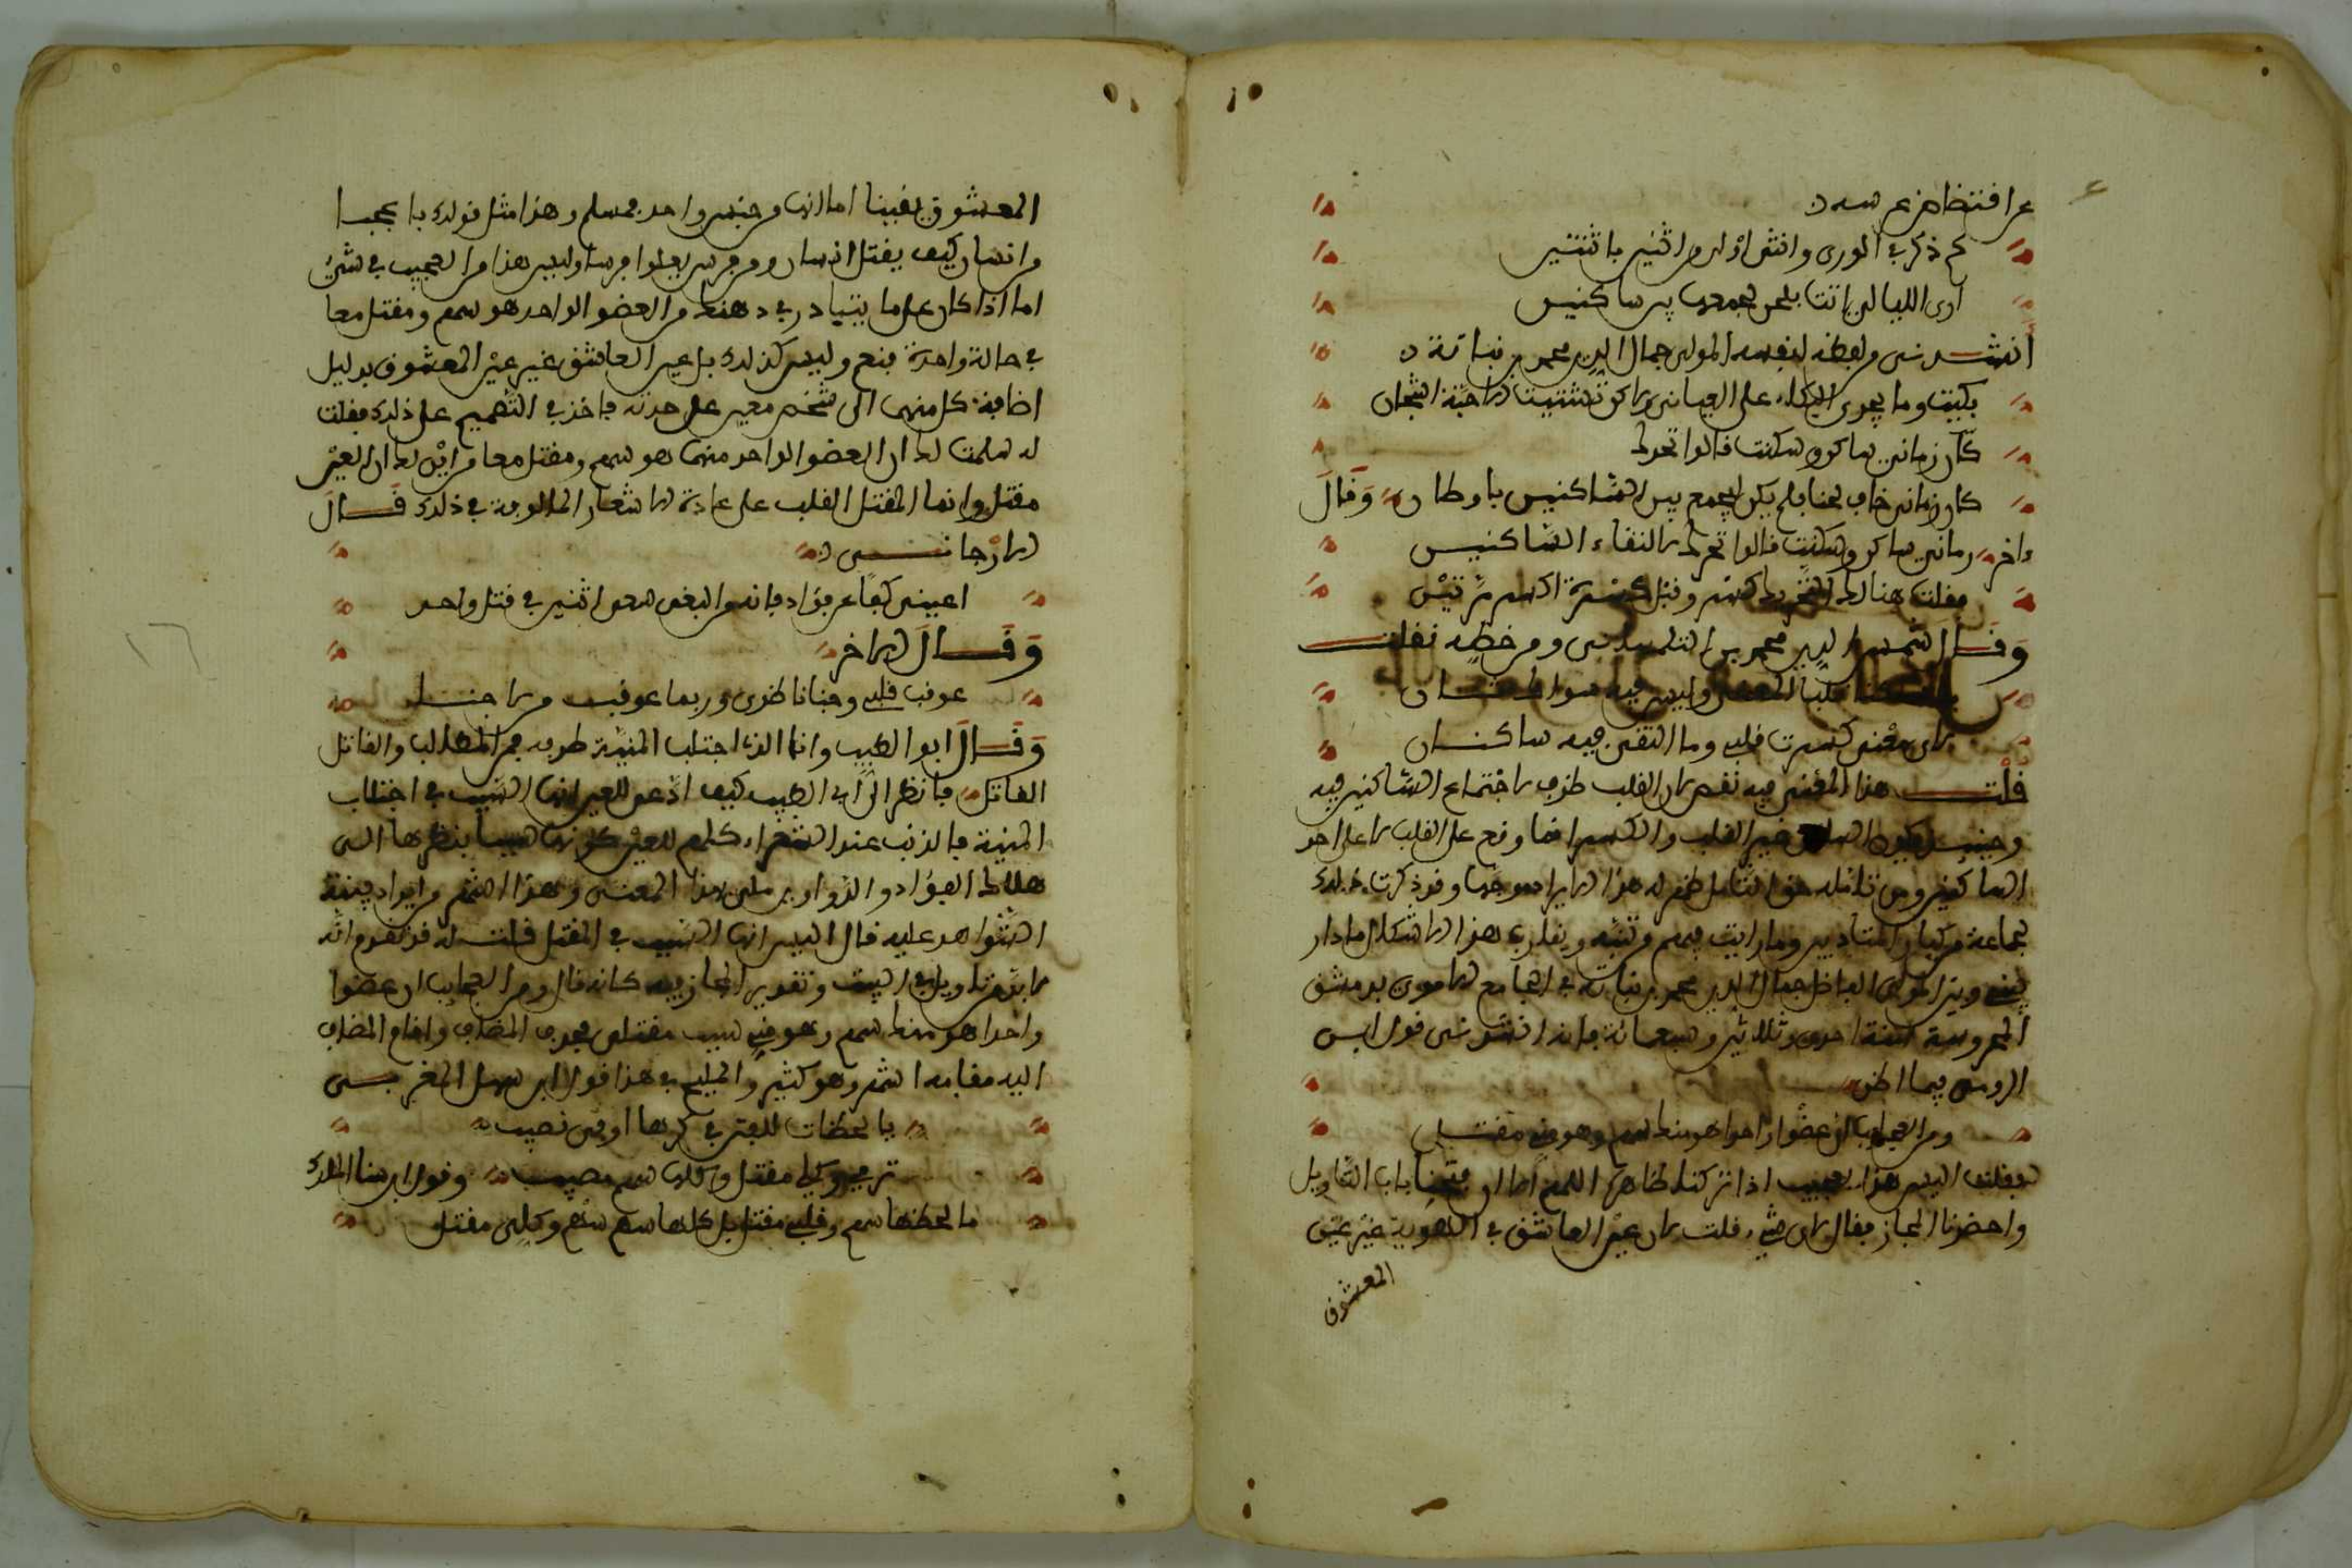 كم ذكر في الورى وانثى اولى من اثنين باثنتين
ارى الليالي اتت بلحن لجمعها بين ساكنين
أنشدني من لفظه لنفسه المولى جمال الدين محمد بن نباتة
بكيت وما يجدي البكاء على العاني
كان زماني ساكن وسكنت قالوا تحرك
كان زماني خاف لحنا فلم يكن ليجمع بين الساكنين باوطان وقال
ءاخر زماني ساكن وسكنت قالوا تحرك لالتقاء الساكنين
فقلت هنالك التحريك كسر وقبل كسرة اكسر مرتين
وقال شمس الدين محمد بن التلمساني ومن خطه نقلت
وليس فيه سواك ثان
لاي معنى كسرت قلبي وما التقى فيه ساكنان
قلت هذا المعنى فيه نقص لان القلب ظرف لاجتماع الساكنين فيه
وحينئذ يكون الساكن غير القلب والكسر انما وقع على القلب لا على احد
الساكنين ومن تامله حق التامل ظهر له هذا الايراد موجها وقد ذكرت ذلك
لجماعة من كبار المتادبين وما رايت فيهم من تنبه ويقارب هذا الاشكال ما دار
بيني وبين المولى الفاضل جمال الدين محمد بن نباتة في الجامع الاموي بدمشق
المحروسة سنة احدى وثلاثين وسبعمائة فانه انشدني قول ابن
الرومي فيما اظن
ومن العجايب ان عضوا واحدا هو منك سهم وهو مني مقتل
فقلت اليس هذا بعجيب اذا تركنا ظاهر اللفظ اما ان فتحنا باب التاويل
واحضرنا المجاز فقال لاي شيء قلت لان عين العاشق في الهوية غير عين
المعشوق
المعشوق يقينا اما انها من جنس واحد فمسلم وهذا مثل قولك يا عجبا
من انسان كيف يقتل انسان ومن فرس يعلوا فرسا وليس هذا من العجيب في شيء
اما اذا كان على ما يتبادر في ذهنك من العضو الواحد هو سهم ومقتل معا
في حالة واحدة فنعم وليس كذلك بل عين العاشق غير عين المعشوق بدليل
اضافة كل منهما الى شخص معين على حدته فاخذ في التصميم على ذلك فقلت
له سلمت لك ان العضو الواحد منهما هو سهم ومقتل معا من اين لك ان العين
مقتل وانما المقتل القلب على عادة الاشعار المالوفة في ذلك قال
الارجاني
اعيني كفا عن فؤادي فانه من البغي سعي اثنين في قتل واحد
وقال الاخر
عوقب قلبي وجنى ناظري وربما عوقب من لا جنى
وقال ابو الطيب وانا الذي اجتلب المنية طرفه فمن المطالب والقاتل
القاتل فانظر الى ابي الطيب كيف ادعى للعين انها السبب في اجتلاب
المنية فالذنب عند الشعراء كلهم للعين كونها سببا بنظرها الى
هلاك الفؤاد والدواوين ملئى بهذا المعنى وهذا اشهر من ايراد بينة
الشواهد عليه قال اليس انها السبب في المقتل قلت له قد تقدم انه
لا بد من تاويل في البيت وتقدير المجاز فيه كانه قال ومن العجايب ان عضوا
واحدا هو منك سهم وهو مني سبب مقتلي فحذف المضاف واقام المضاف
اليه مقامه اشهر وهو كثير والمليح في هذا قول ابن سهل المغربي
يا لحظات للعين في كرها اوفى نصيب
ترمي وكلي مقتل وكلها سهم مصيب وقول ابن سنا الملك
ما لحظها سهم وقلبي مقتل بل كلها سهم سهم وكلي مقتل